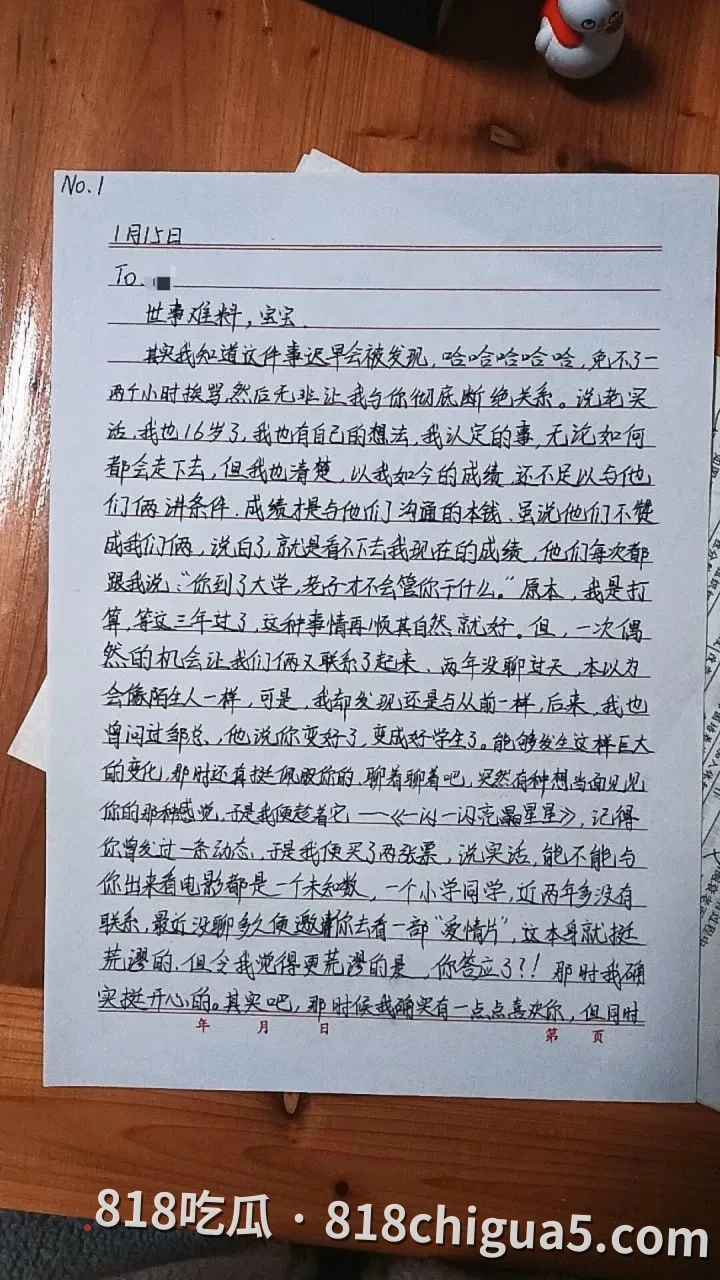 No.1
1月15日
To.
世事难料，宝宝.
其实我知道这件事迟早会被发现，哈哈哈哈哈，免不了一
两个小时挨骂,然后无非让我与你彻底断绝关系。说老实
话,我也16岁了,我也有自己的想法,我认定的事,无论如何
都会走下去,但我也清楚,以我如今的成绩,还不足以与他
们俩讲条件.成绩才是与他们沟通的本钱.虽说他们不赞
成我们俩,说白了,就是看不下去我现在的成绩,他们每次都
跟我说:“你到了大学,老子才不会管你干什么.”原本,我是打
算,等这三年过了,这种事情再顺其自然就好。但,一次偶
然的机会让我们俩又联系了起来、两年没聊过天,本以为
会像陌生人一样,可是,我却发现还是与从前一样,后来,我也
曾问过邹总,他说你变好了,变成好学生了。能够发生这样巨大
的变化,那时还真挺佩服你的,聊着聊着吧,突然有种想当面见见
你的那种感觉,于是我便趁着它——《一闪一闪亮晶星星》,记得
你曾发过一条动态,于是我便买了两张票,说实话,能不能与
你出来看电影都是一个未知数,一个小学同学,近两年多没有
联系,最近没聊多久便邀请你去看一部“爱情片”,这本身就挺
荒谬的.但令我觉得更荒谬的是,你答应了?!那时我确
实挺开心的。其实吧,那时候我确实有一点点喜欢你,但同时
年 月 日
第 页
818吃瓜·818chigua5.com